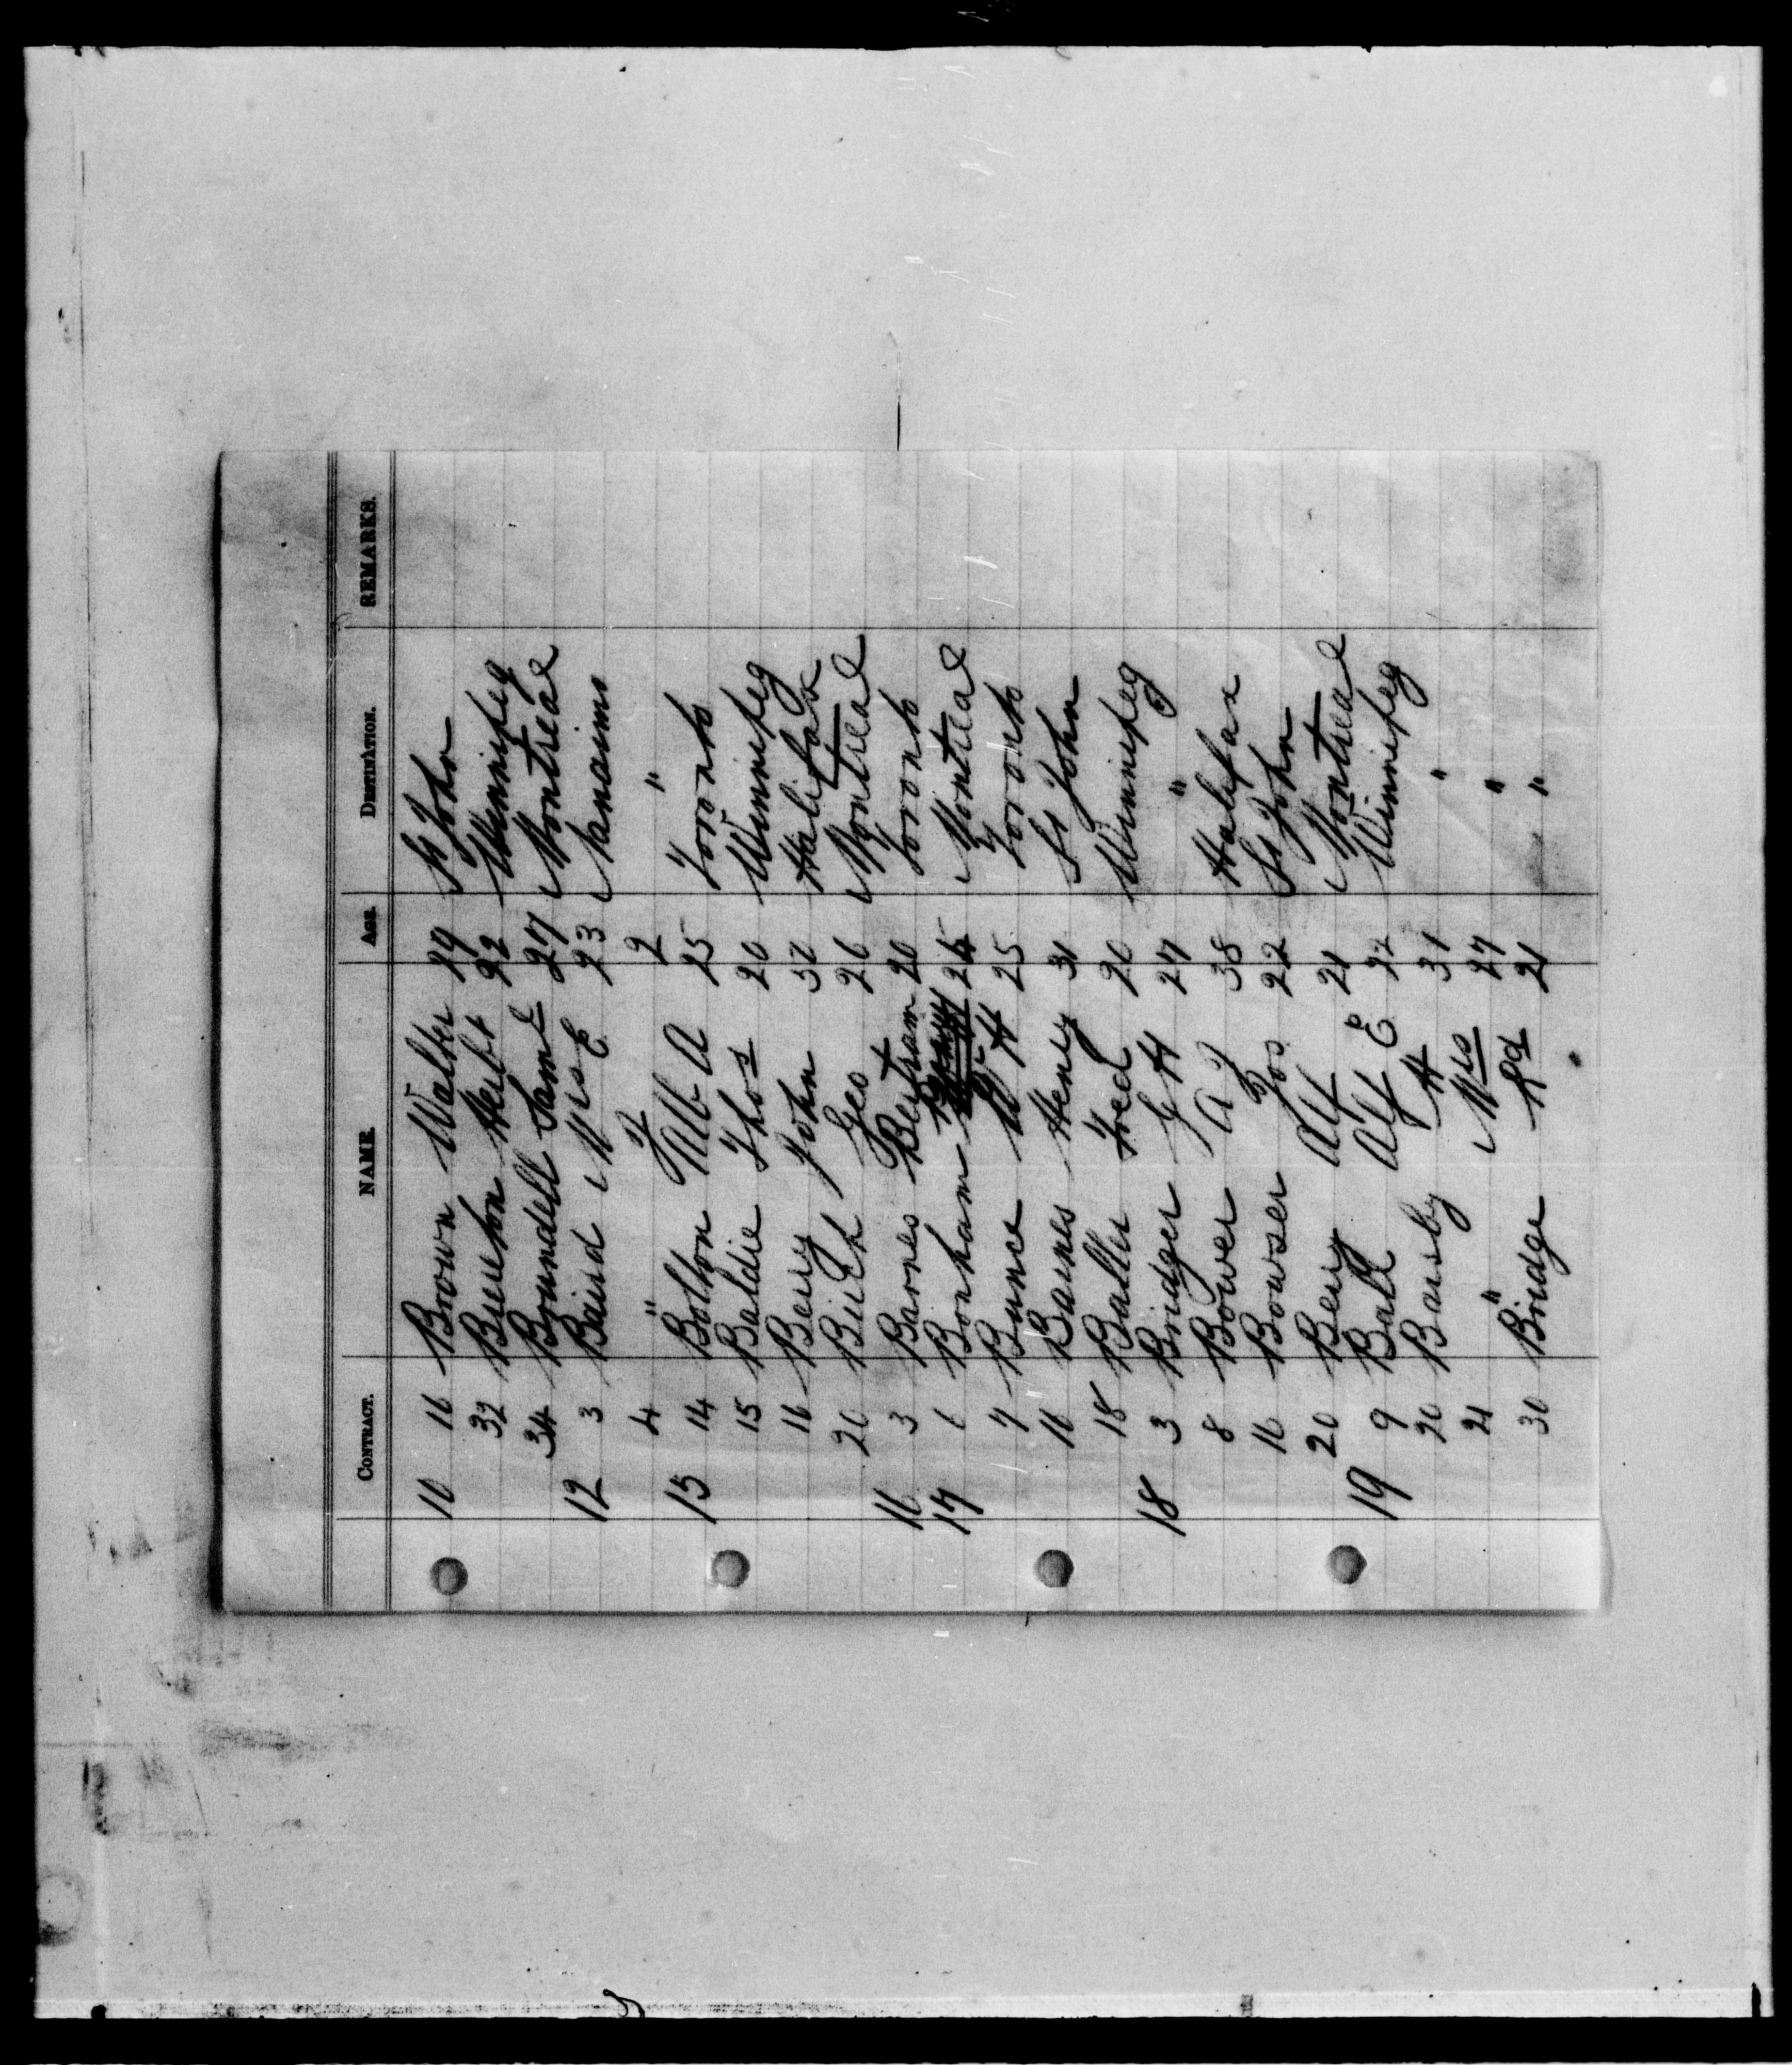 CONTRACT. NAME. AGE. DESTINATION. REMARKS.
10 16 Brown Walter 29 St John
32 Brereton Herbt 22 Winnipeg
34 Brundell Saml 27 Montreal
12 3 Baird Mrs E 23 Nanaimo
4 " J 2 "
15 14 Bolton Wm A 25 Toronto
15 Baldie Thos 20 Winnipeg
16 Berry John 32 Halifax
20 Birch Geo 26 Montreal
16 3 Barnes Bertram 20 Toronto
17 1 Bonham Montreal
7 Bunce W H 25 Toronto
16 Barnes Henry 31 St John
18 Baller Fred 20 Winnipeg
18 3 Bridger G H 27 "
8 Bower A J 38 Halifax
16 Bowser Jos 22 St John
20 Berry Alf 21 Montreal
19 9 Ball Alf E 32 Winnipeg
20 Bausby H 31 "
21 " Mrs 27 "
30 Bridge Rd 21 "